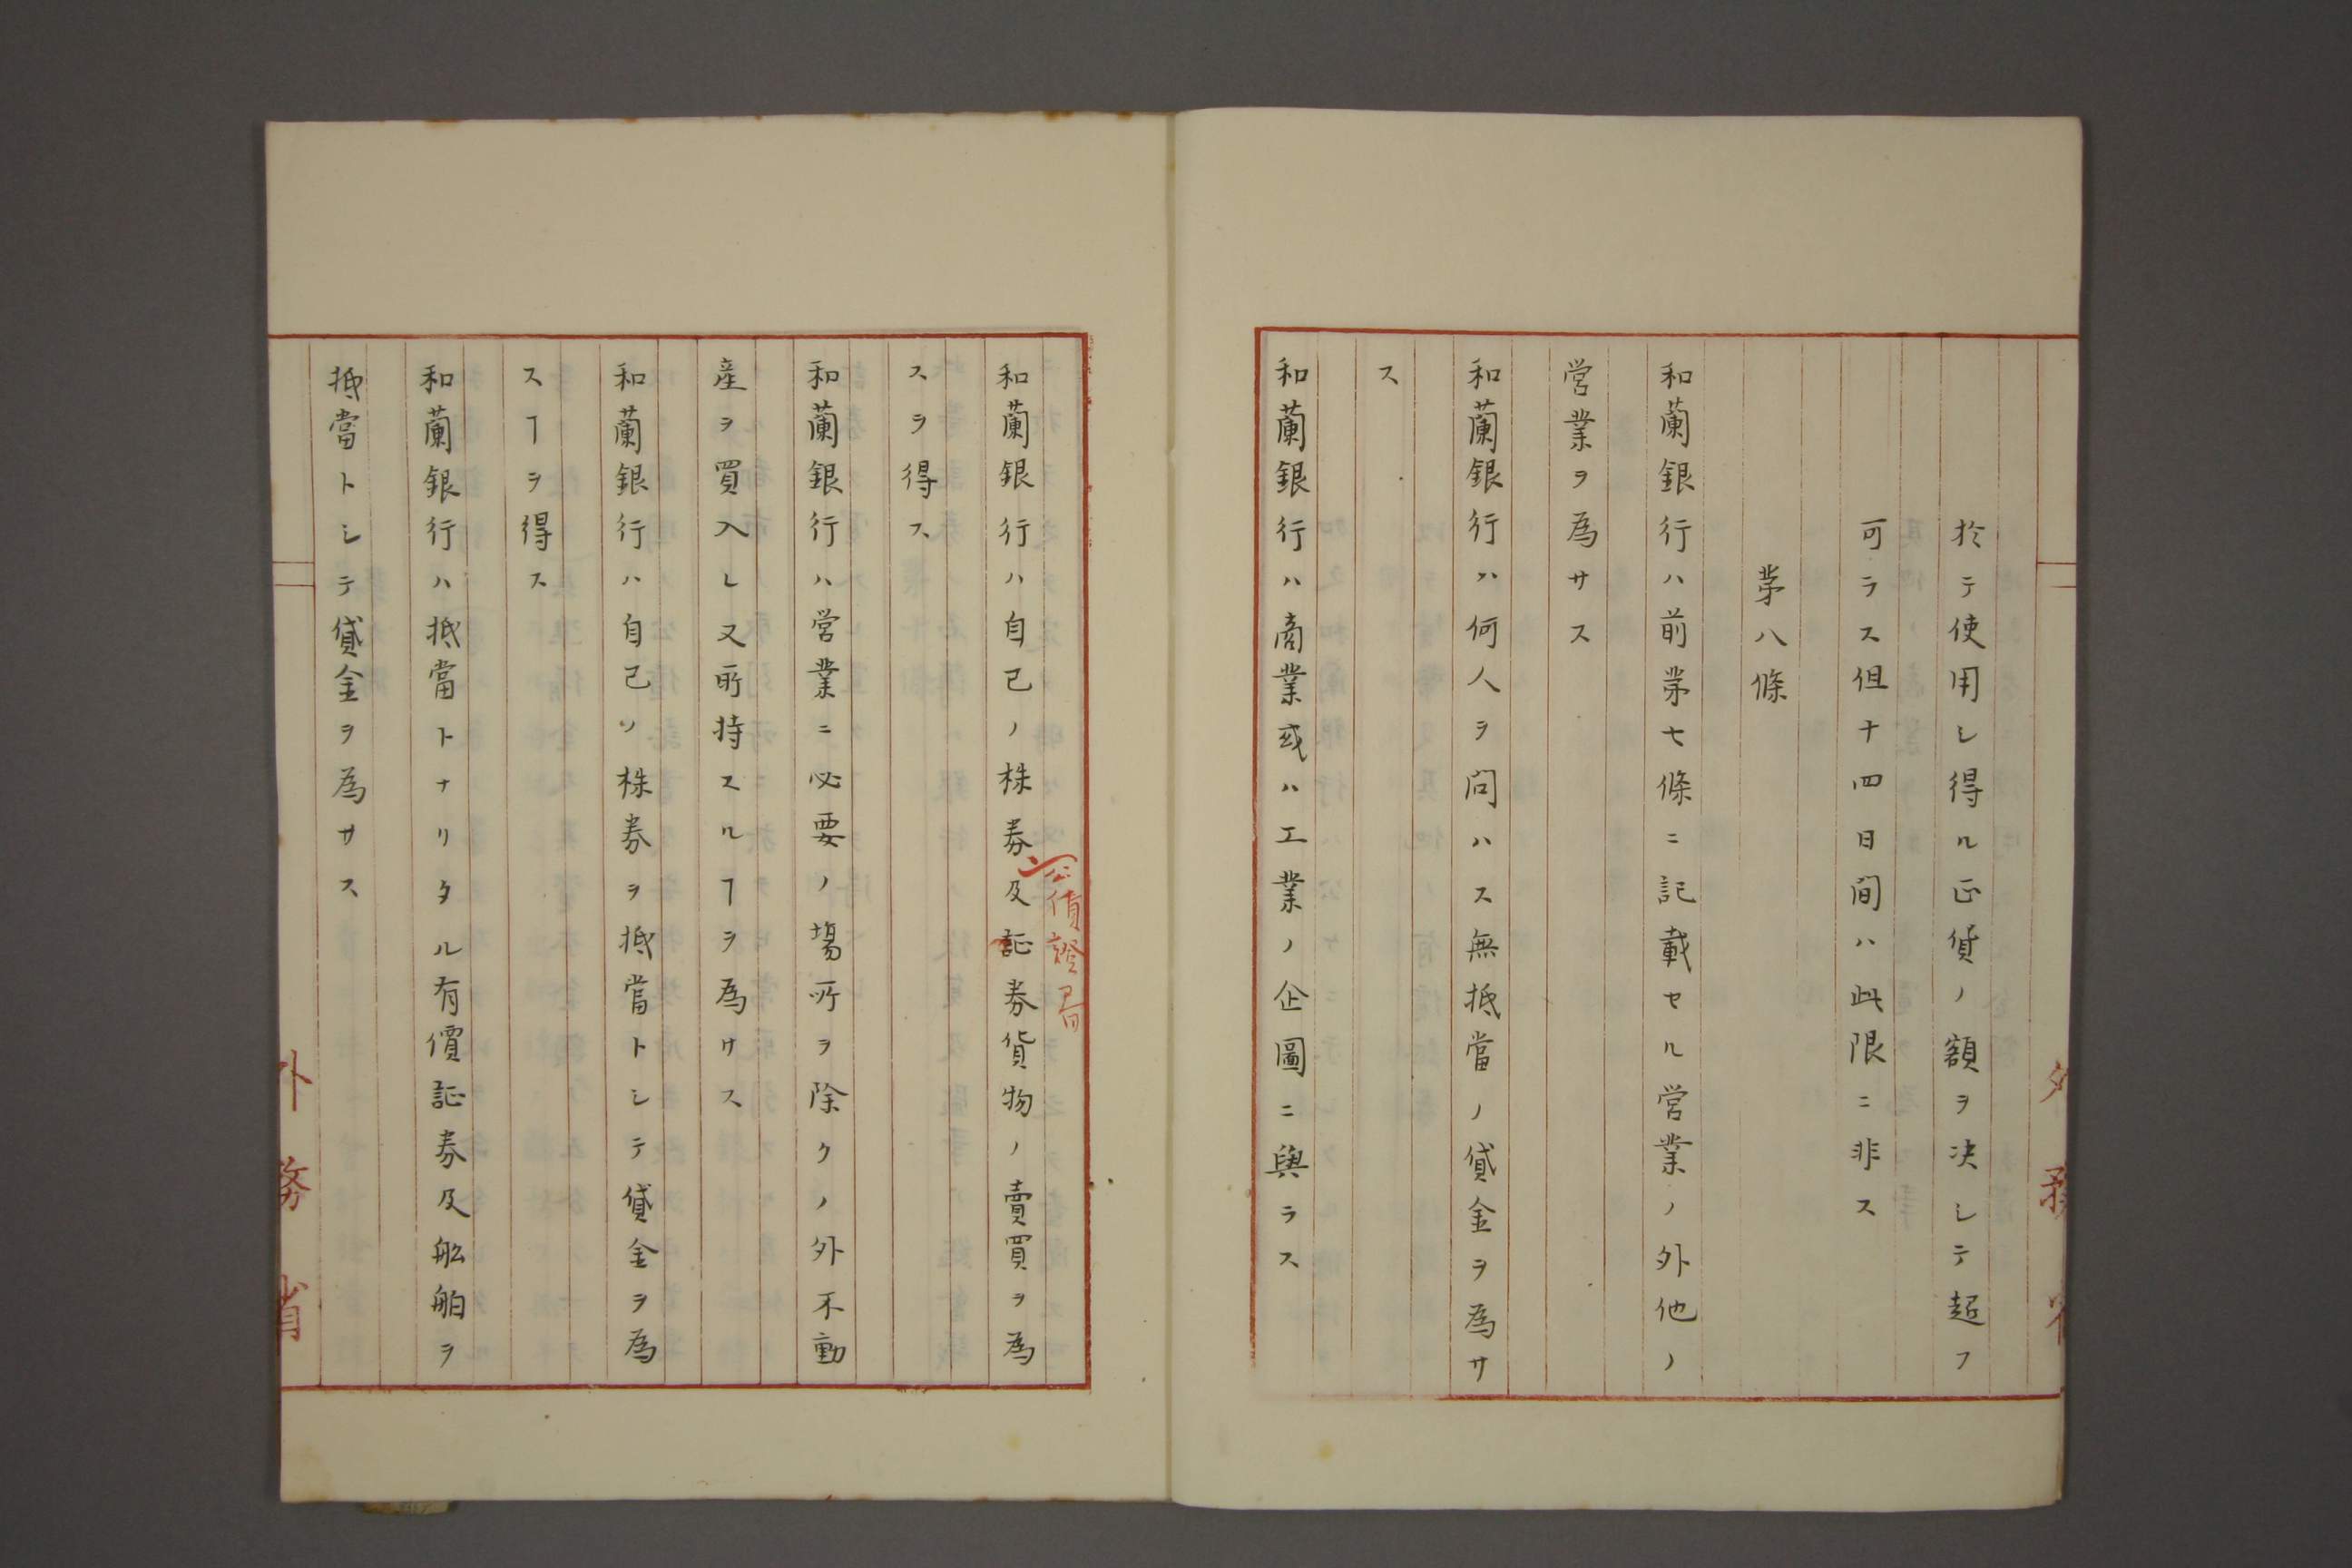 於テ使用シ得ル正貨ノ額ヲ決シテ超フ
可ラス但十四日間ハ此限ニ非ス
第八條
和蘭銀行ハ前第七條ニ記載セル営業ノ外他ノ
営業ヲ為サス
和蘭銀行ハ何人ヲ問ハス無抵當ノ貸金ヲ為サ
ス
和蘭銀行ハ商業或ハ工業ノ企圖ニ與ラス
外務省
和蘭銀行ハ自己ノ株券及証券貨物ノ賣買ヲ為
公債證書
スヲ得ス
和蘭銀行ハ営業ニ必要ノ場所ヲ除クノ外不動
産ヲ買入レ又所持スルヿヲ為サス
和蘭銀行ハ自己ノ株券ヲ抵當トシテ貸金ヲ為
スヿヲ得ス
和蘭銀行ハ抵當トナリタル有價証券及舩舶ヲ
抵當トシテ貸金ヲ為サス
外務省